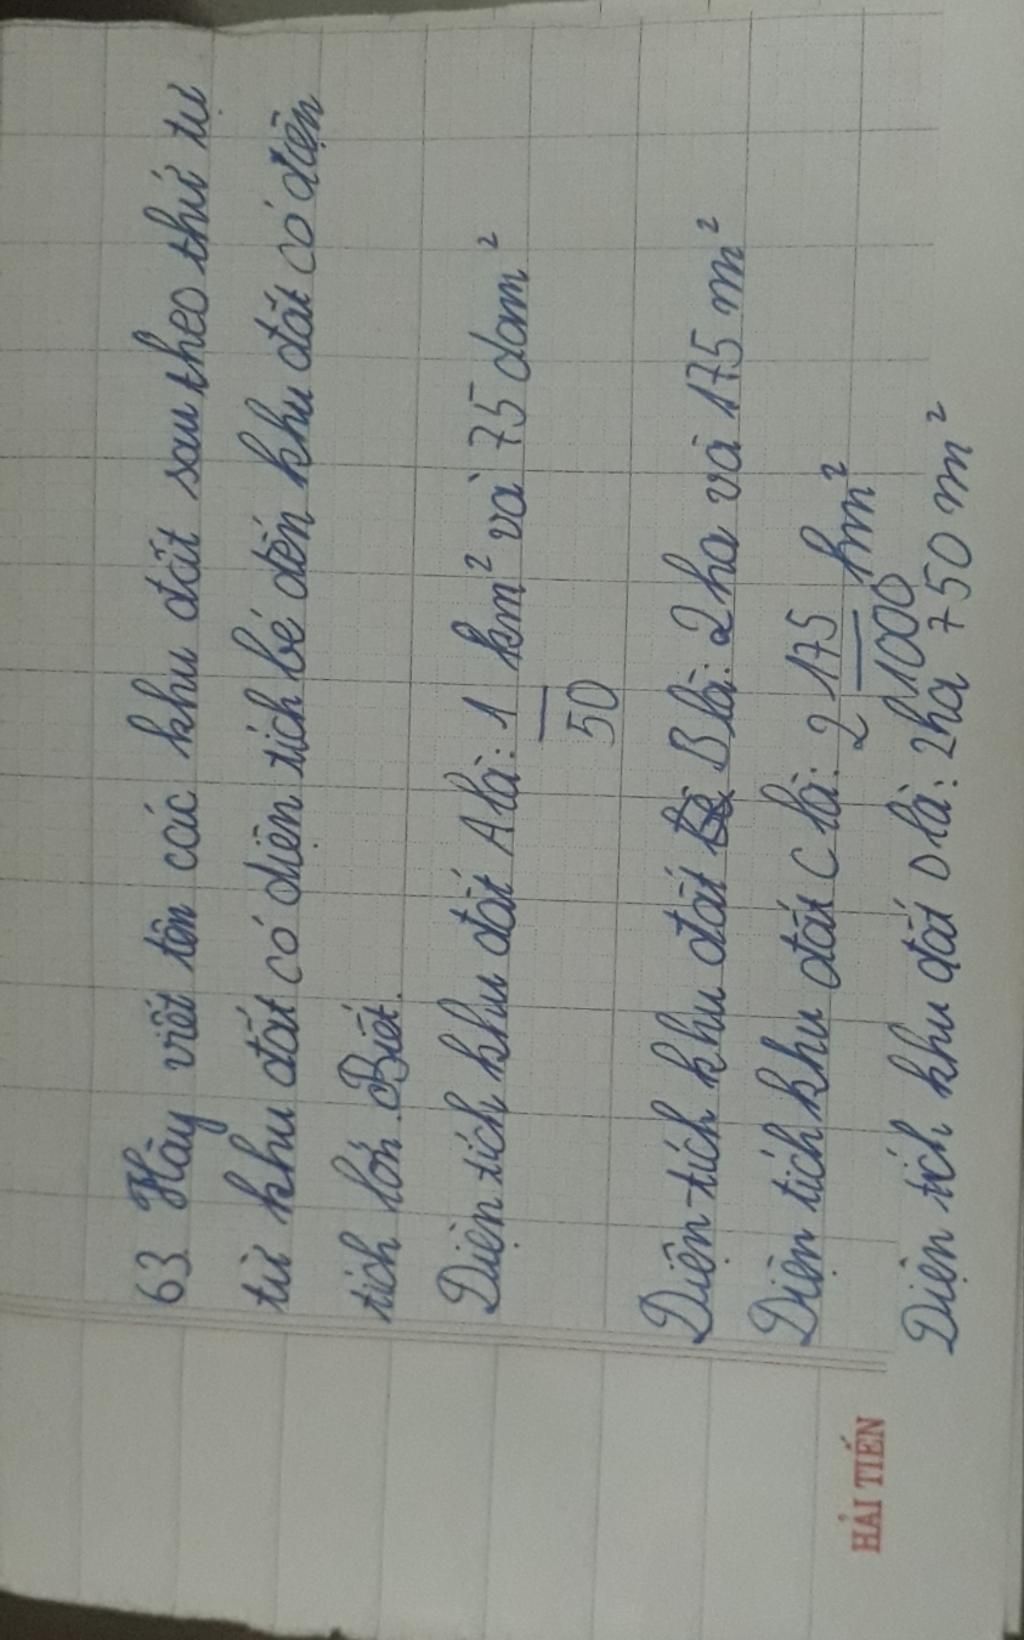 63. Hãy viết tên các khu đất sau theo thứ tự
từ khu đất có diện tích bé đến khu đất có diện
tích lớn. Biết.
Diện tích khu đất A là: 1/50 km² và 75 dam²
Diện tích khu đất B là: 2 ha và 175 m²
Diện tích khu đất C là: 2 175/1000 hm²
Diện tích khu đất D là: 2ha 750 m²
HẢI TIẾN